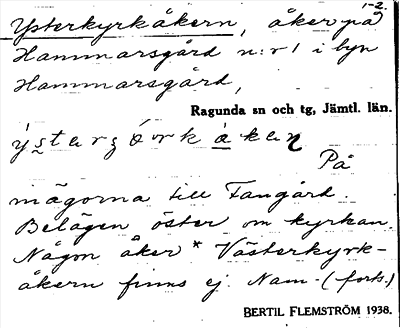 1-2.
Ysterkyrkåkern, åker på
Hammarsgård n:r 1 i byn
Hammarsgård,
Ragunda sn och tg, Jämtl. län.
På
mägorna till Fangård.
Belägen öster om kyrkan.
Någon åker * Västerkyrk-
åkern finns ej. Nam- (forts.)
BERTIL FLEMSTRÖM 1938.